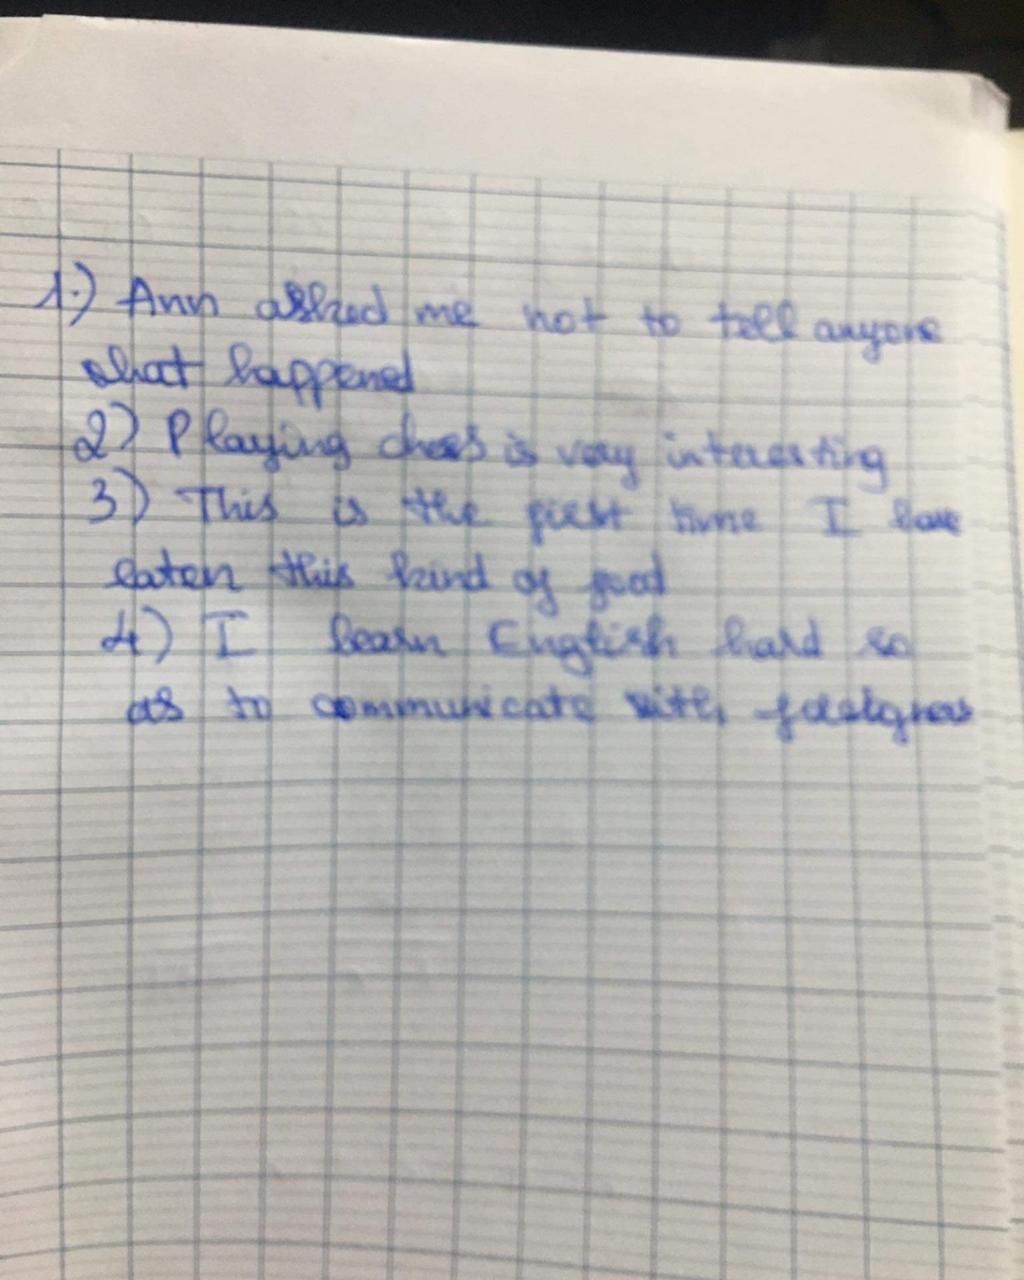 1.) Ann asked me not to tell anyone
what happened
2) Playing chess is very interesting
3) This is the first time I have
eaten this kind of food
4) I learn English hard so
as to communicate with